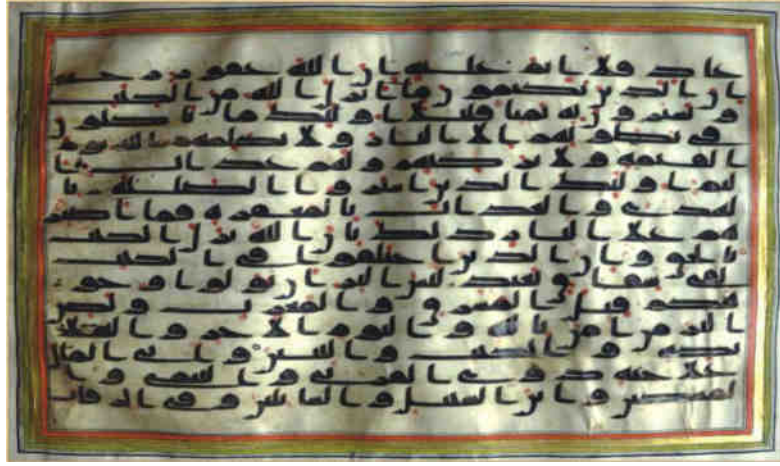 عاد فلا اثم عليه ان الله غفور رحيم
ان الذين يكتمون ما انزل الله من الكتب
و يشترون به ثمنا قليلا اولئك ما ياكلون
في بطونهم الا النار ولا يكلمهم الله يوم
القيمة ولا يزكيهم ولهم عذاب ا
ليم اولئك الذين اشتروا الضللة با
لهدى والعذاب بالمغفرة فما اصبر
هم على النار ذلك بان الله نزل الكتب
بالحق وان الذين اختلفوا في الكتب
لفي شقاق بعيد ليس البر ان تولوا وجو
هكم قبل المشرق والمغرب ولكن
البر من امن بالله واليوم الاخر والملـ
ـئكة والكتب والنبين واتى المال
على حبه ذوى القربى واليتمى وا
لمسكين وابن السبيل والسائلين وفي الرقاب